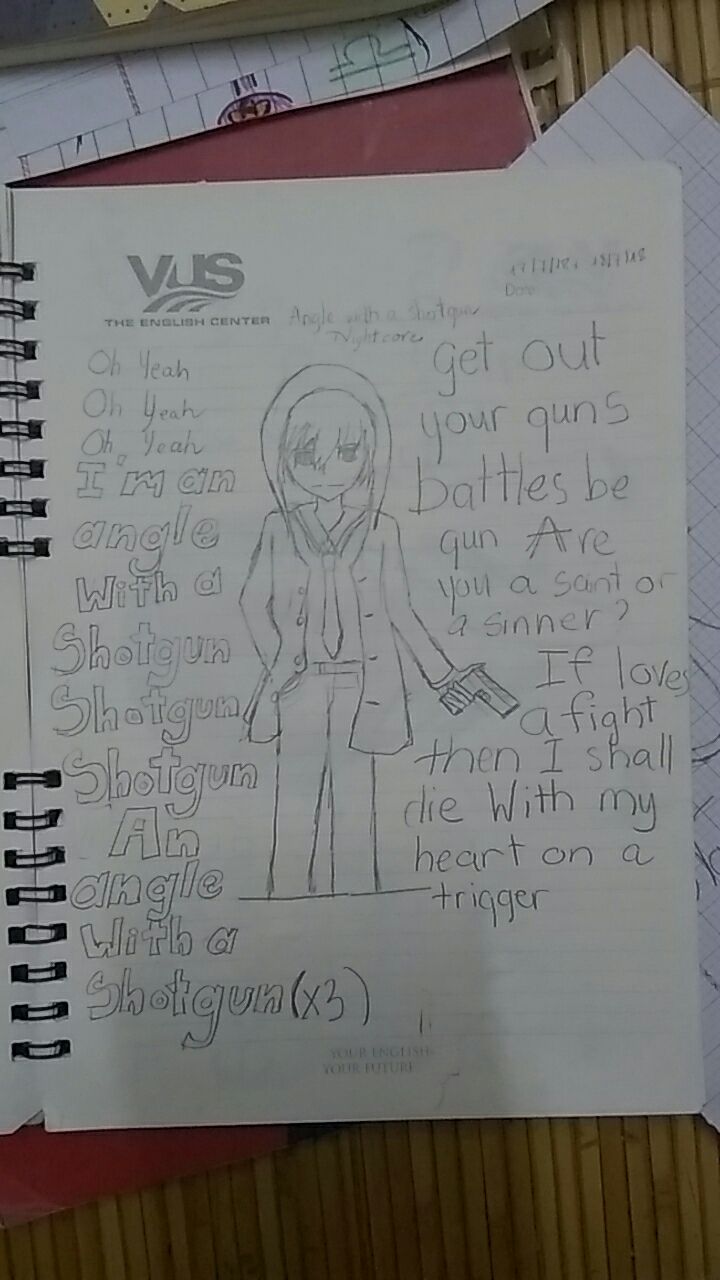 VUS
THE ENGLISH CENTER
Date
Angle with a shotgun
Nightcore
Oh Yeah
Oh Yeah
Oh, Yeah
I'm an
angle
With a
Shotgun
Shotgun
Shotgun
An
angle
With a
Shotgun (x3)
get out
your guns
battles be
gun Are
you a saint or
a sinner?
If loves
a fight
then I shall
die With my
heart on a
trigger
YOUR ENGLISH
YOUR FUTURE